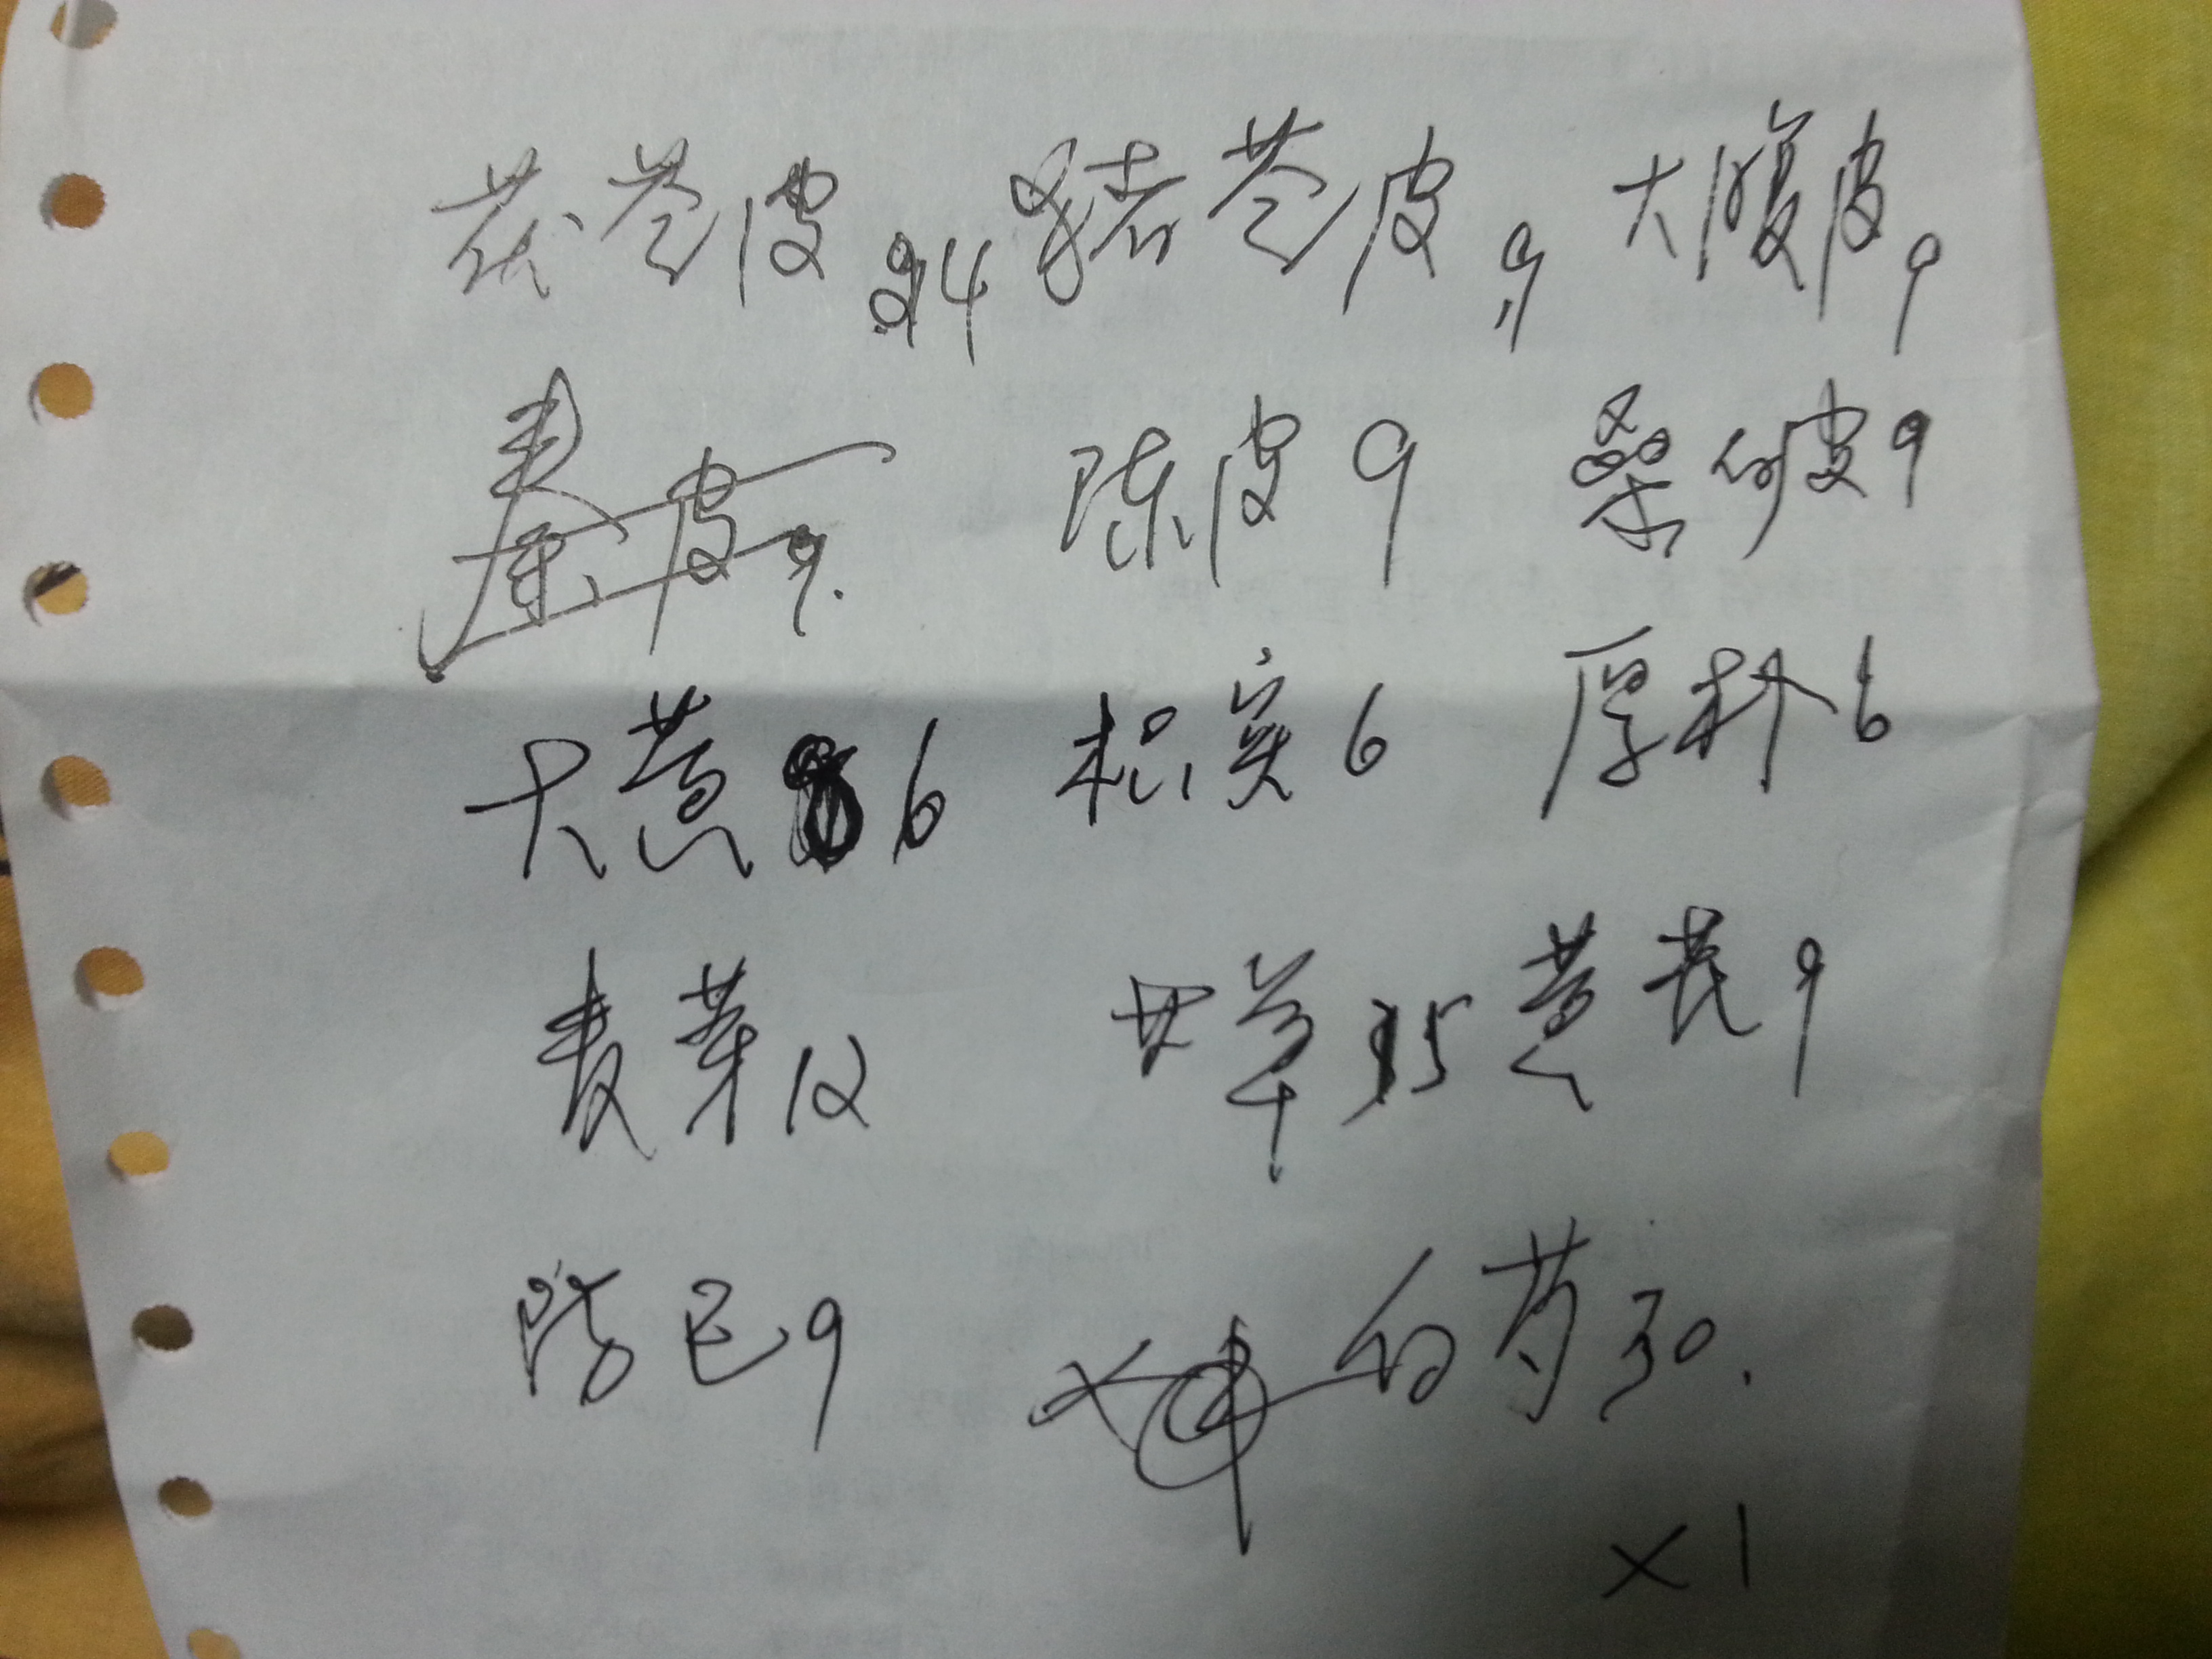 茯苓皮 24 猪苓皮 9 大腹皮 9
皮 9. 陈皮 9 桑白皮 9
大黄 6 枳实 6 厚朴 6
麦芽 12 甘草 15 黄芪 9
防己 9 白芍 30.
×1